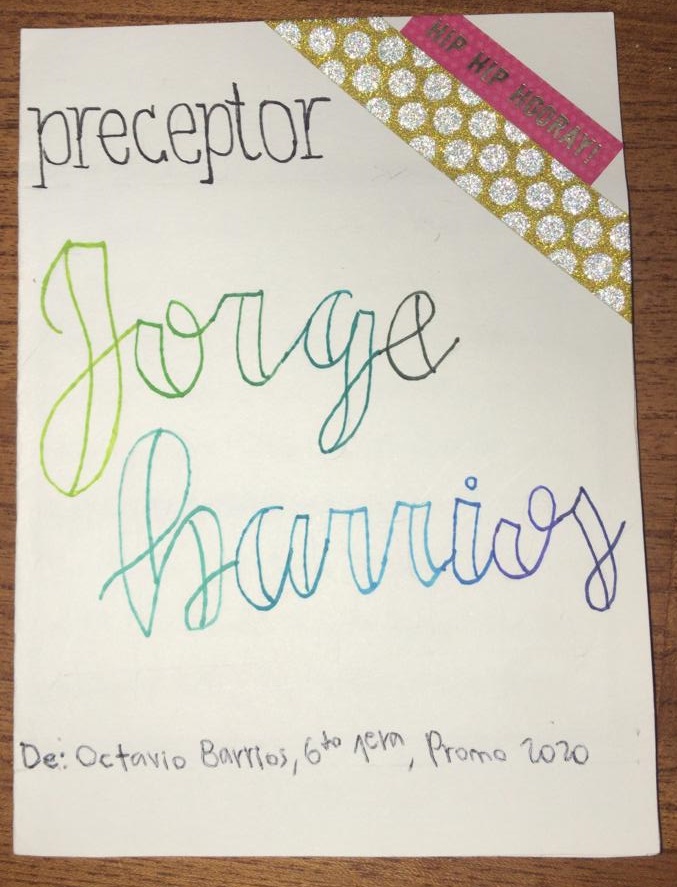 HIP HIP HOORAY!
preceptor
Jorge
barrios
De: Octavio Barrios, 6to 1era, Promo 2020